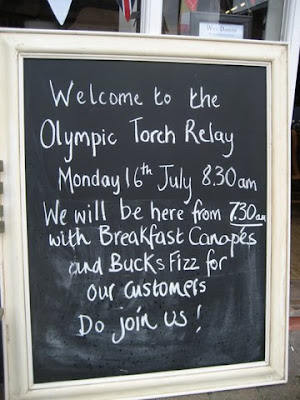 Welcome to the
Olympic Torch Relay
Monday 16th July 8.30am
We will be here from 7.30am
with Breakfast Canapés
and Bucks Fizz for
our customers
Do join us!